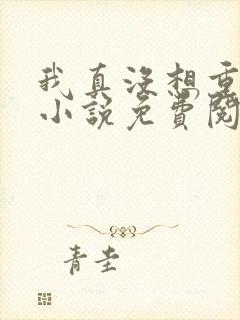 我真没想重
小说免费阅
青圭